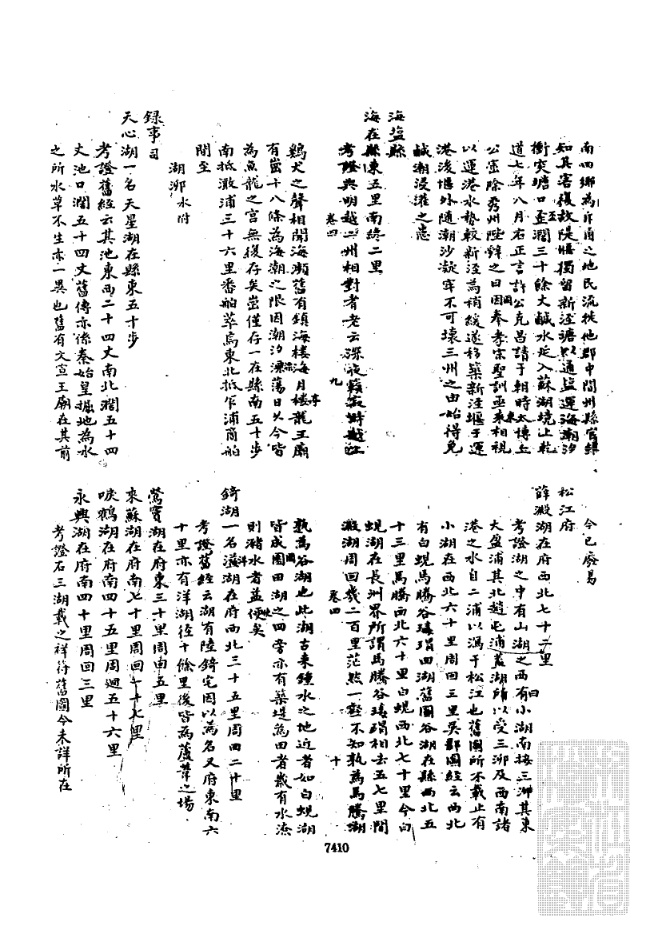 南四鄉為斥鹵之地民流徙他郡中間州縣官雖
知其害復故堤堰獨留新涇塘以通鹽運海潮汐
衝突塘口至濶三十餘丈鹹水延入蘇湖境上乾
道七年八月右正言許公克昌請于朝時太博丘
公崈除秀州陛辭之日面奉孝宗聖訓亟來相視
以運港水勢較新涇為稍緩遂移築新涇堰于運
港後堰外隨潮沙凝牢不可壞三州之田始得免
鹹潮浸灌之患
海鹽縣
海在縣東五里南終二里
考證與明越二州相對耆老云深夜
卷四
九
鷄犬之聲相聞海瀕舊有鎮海樓海月亭龍王廟
有堂十八條為海潮之限因潮汐漂蕩日久今皆
為魚龍之宮無復存矣堂僅存一在縣南五十步
南抵澉浦三十六里番舶萃焉東北抵乍浦商舶
間至
湖泖 水附
錄事司
天心湖一名天星湖在縣東五十步
考證舊經云其池東西二十四丈南北濶五十四
丈池口濶五十四丈舊傳亦係秦始皇掘地為水
之所水草不生亦一異也舊有文宣王廟在其前
今已廢易
松江府
薛澱湖在府西北七十二里
考證湖之中有山湖之西有小湖南接三泖其東
大盈浦其北趙屯浦蓋湖所以受三泖及西南諸
港之水自二浦以瀉于松江也舊圖所不載止有
小湖在西北六十里周回三里吳郡圖經云西北
有白蜆馬騰谷瑇瑁四湖舊圖谷湖在縣西北五
十三里馬騰西北六十里白蜆西北七十里今白
蜆湖在長州界所謂馬騰谷瑇瑁相去五七里間
澱湖周回幾二百里茫然一壑不知孰為馬騰湖
卷四
十
孰為谷湖也此湖古來鍾水之地近者如白蜆湖
皆成圍田湖之四旁亦有築堤為田者歲有水潦
則瀦水者益狹矣
錡湖一名瀁湖在府西北三十五里周回二十里
考證舊經云湖有陸錡宅因以為名又府東南六
十里亦有洋湖徑十餘里後皆為蘆葦之場
鶯竇湖在府東三十里周南五里
來蘇湖在府南七十里周回一十七里
唳鶴湖在府南四十五里周廻五十六里
永興湖在府南四十里周回三里
考證右三湖載之祥符舊圖今未詳所在
7410